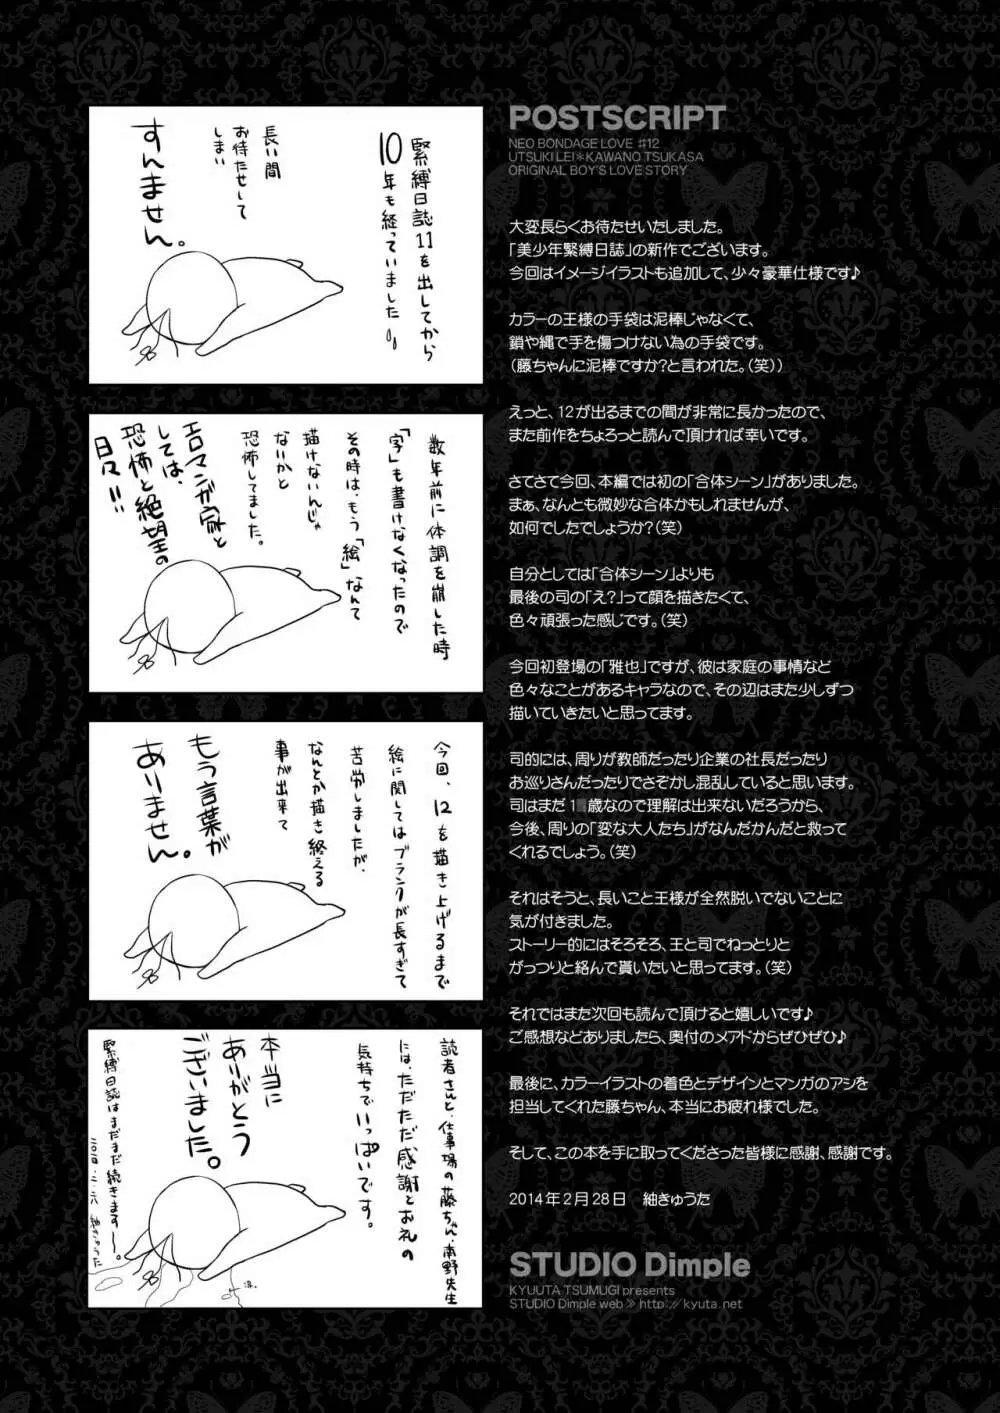 POSTSCRIPT
NEO BONDAGE LOVE #12
UTSUKI LEI＊KAWANO TSUKASA
ORIGINAL BOY'S LOVE STORY
緊縛日誌11を出してから
10年も経っていました
長い間
お待たせして
しまい
すんません。
数年前に体調を崩した時
「字」も書けなくなったので
その時は、もう「絵」なんて
描けないんじゃ
ないかと
恐怖してました。
エロマンガ家と
しては、
恐怖と絶望の
日々!!
今回、12を描き上げるまで
絵に関してはブランクが長すぎて
苦労しましたが、
なんとか描き終える
事が出来て
もう言葉が
ありません。
読者さんと、仕事場の藤ちゃん・南野先生
には、ただただ感謝とお礼の
気持ちでいっぱいです。
本当に
ありがとう
ございました。
緊縛日誌はまだまだ続きますー。
大変長らくお待たせいたしました。
「美少年緊縛日誌」の新作でございます。
今回はイメージイラストも追加して、少々豪華仕様です♪
カラーの王様の手袋は泥棒じゃなくて、
鎖や縄で手を傷つけない為の手袋です。
（藤ちゃんに泥棒ですか？と言われた。（笑））
えっと、12が出るまでの間が非常に長かったので、
また前作をちょろっと読んで頂ければ幸いです。
さてさて今回、本編では初の「合体シーン」がありました。
まぁ、なんとも微妙な合体かもしれませんが、
如何でしたでしょうか？（笑）
自分としては「合体シーン」よりも
最後の司の「え？」って顔を描きたくて、
色々頑張った感じです。（笑）
今回初登場の「雅也」ですが、彼は家庭の事情など
色々なことがあるキャラなので、その辺はまた少しずつ
描いていきたいと思ってます。
司的には、周りが教師だったり企業の社長だったり
お巡りさんだったりでさぞかし混乱していると思います。
司はまだ1歳なので理解は出来ないだろうから、
今後、周りの「変な大人たち」がなんだかんだと救って
くれるでしょう。（笑）
それはそうと、長いこと王様が全然脱いでないことに
気が付きました。
ストーリー的にはそろそろ、王と司でねっとりと
がっつりと絡んで貰いたいと思ってます。（笑）
それではまた次回も読んで頂けると嬉しいです♪
ご感想などありましたら、奥付のメアドからぜひぜひ♪
最後に、カラーイラストの着色とデザインとマンガのアシを
担当してくれた藤ちゃん、本当にお疲れ様でした。
そして、この本を手に取ってくださった皆様に感謝、感謝です。
2014年2月28日　紬きゅうた
STUDIO Dimple
KYUUTA TSUMUGI presents
STUDIO Dimple web≫http://kyuta.net